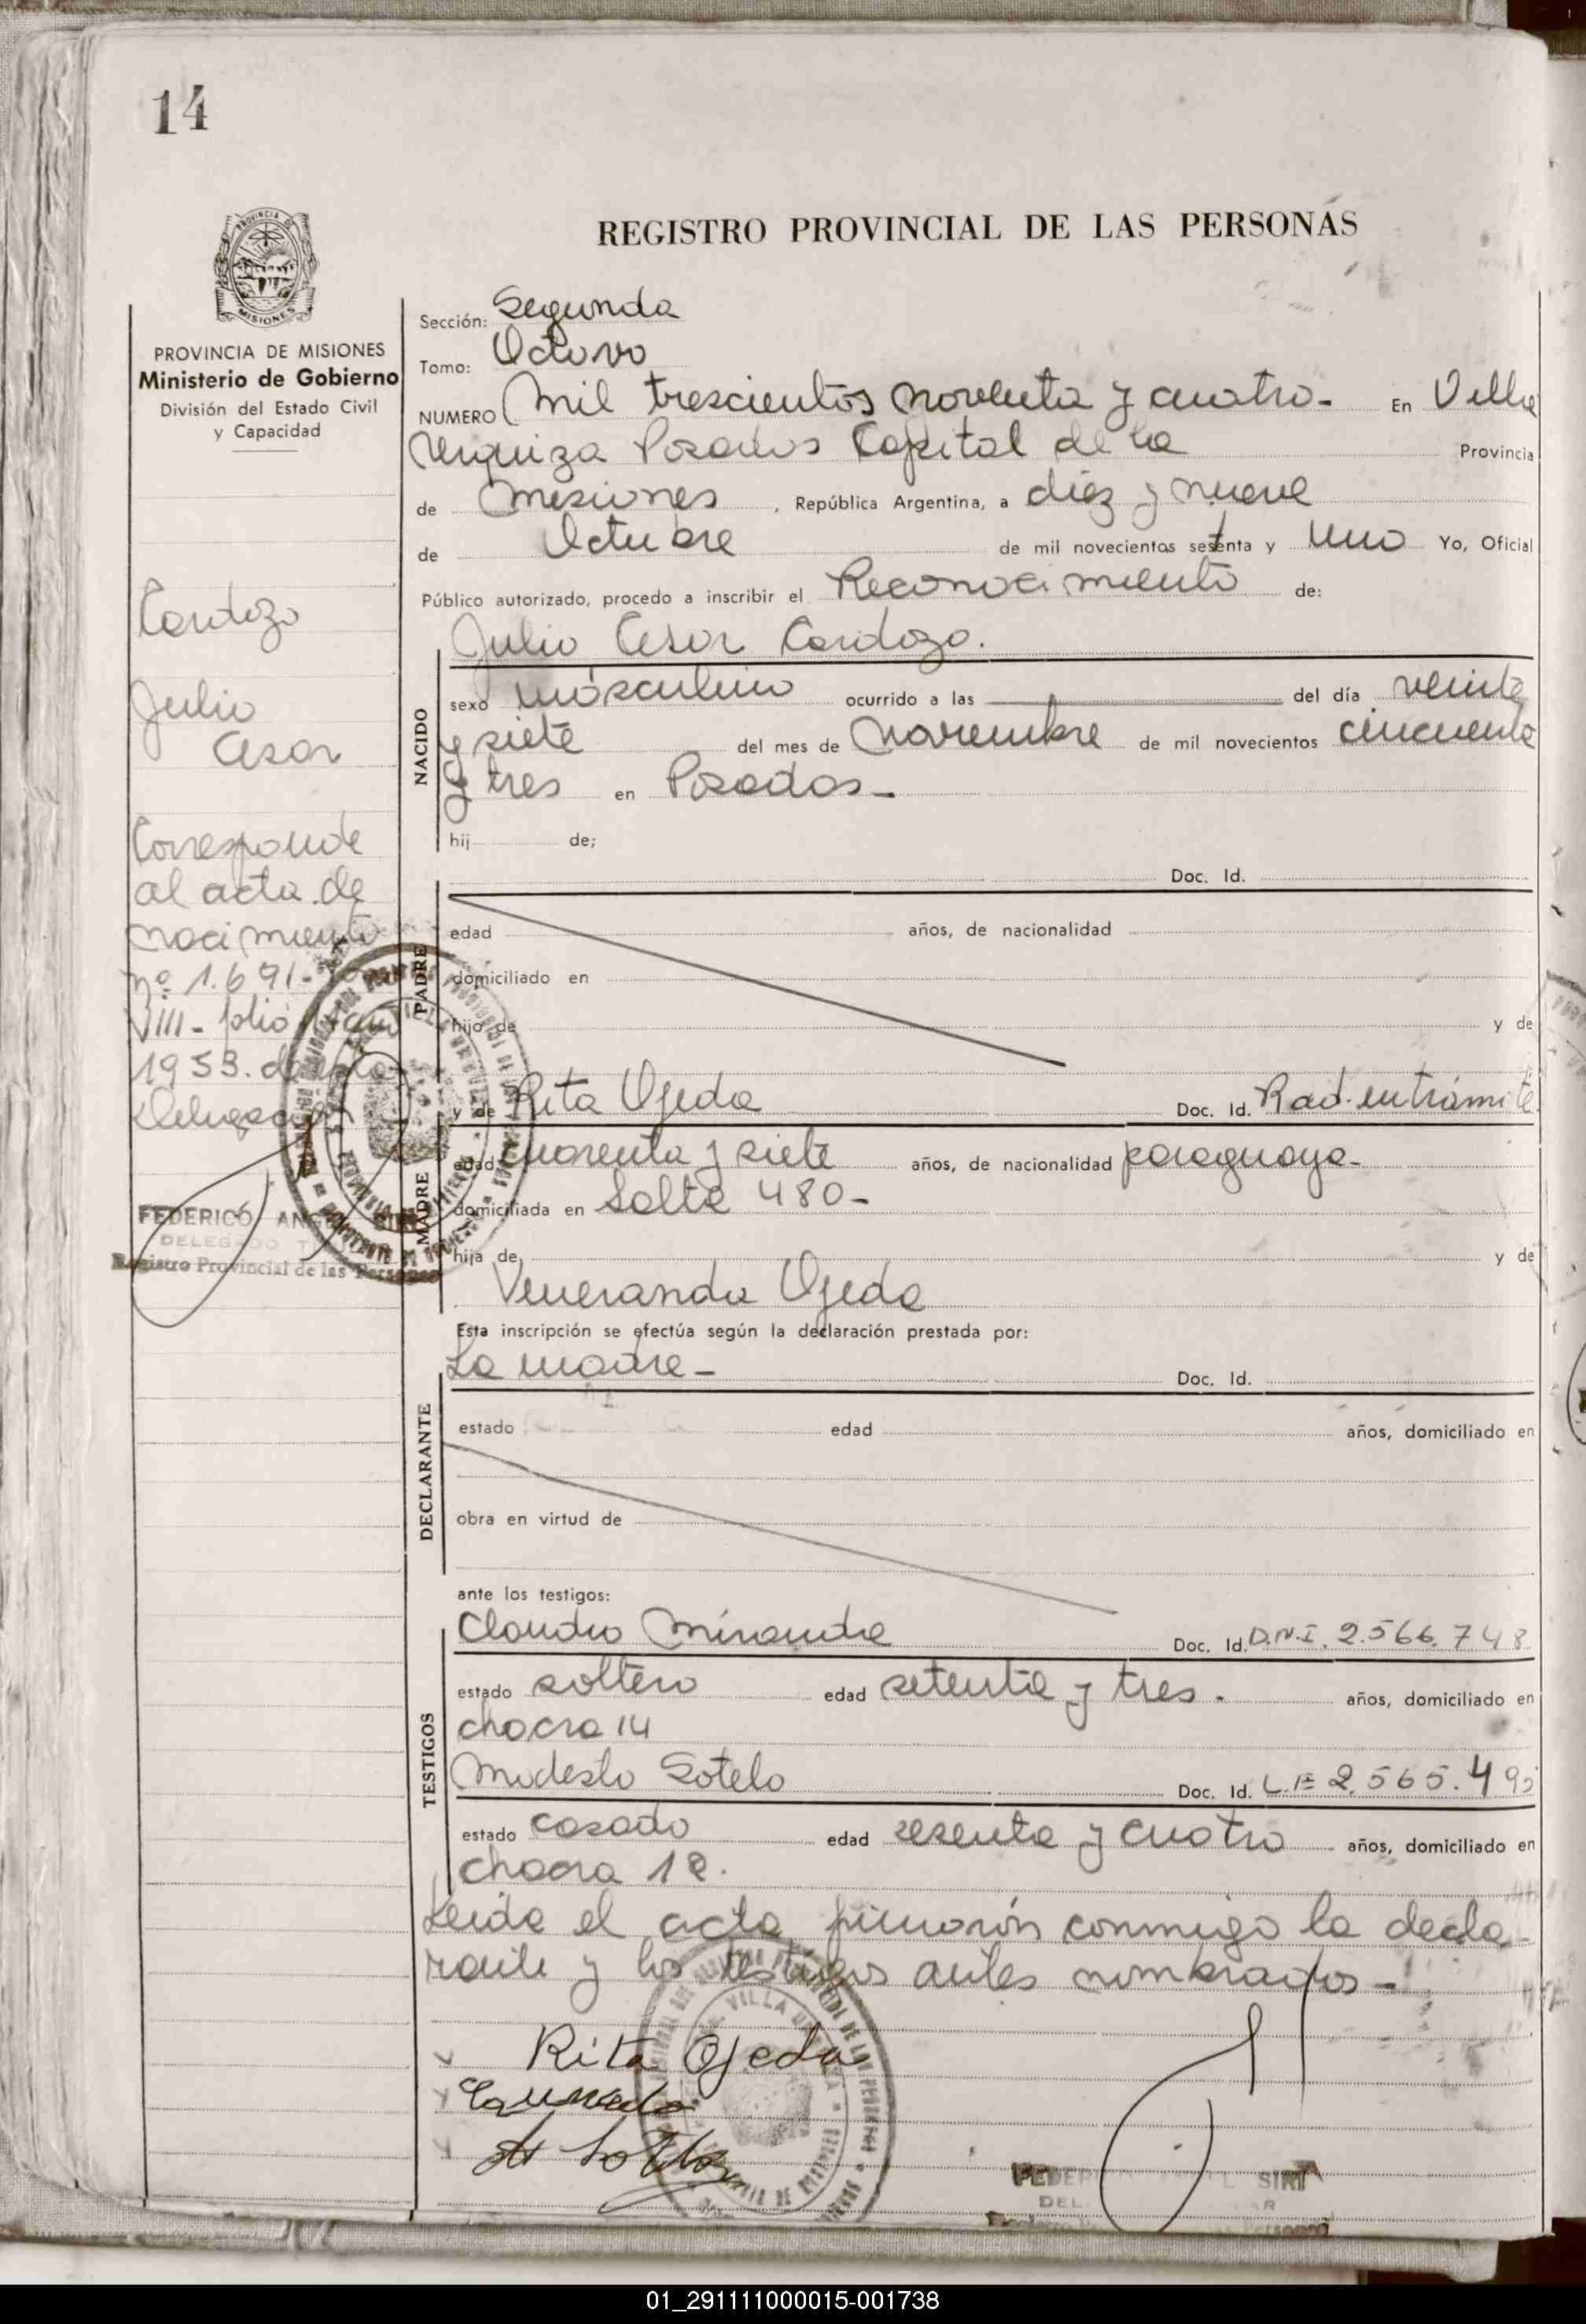 14
REGISTRO PROVINCIAL DE LAS PERSONAS
PROVINCIA DE MISIONES
Ministerio de Gobierno
División del Estado Civil
y Capacidad
Cardozo
Julio
Cesar
Corresponde
al acta de
nacimiento
nº 1.691-
VIII- folio
1953. de
Delegación
FEDERICO ANGEL SIRI
DELEGADO
Registro Provincial de las Personas
Sección: Segunda
Tomo: Octavo
NUMERO Mil trescientos noventa y cuatro- En Villa
Urquiza Posadas Capital de la Provincia
de Misiones, República Argentina, a diez y nueve
de Octubre de mil novecientos setenta y Uno Yo, Oficial
Público autorizado, procedo a inscribir el Reconocimiento de:
Julio Cesar Cardozo.
NACIDO
sexo másculino ocurrido a las del día veinte
y siete del mes de Noviembre de mil novecientos cincuenta
y tres en Posadas-
hij de;
Doc. Id.
PADRE
edad años, de nacionalidad
domiciliado en
hijo de y de
y de Rita Ojeda Doc. Id. Rad. en trámite
MADRE
edad cuarenta y siete años, de nacionalidad paraguaya-
domiciliada en Salta 480-
hija de y de
Veneranda Ojeda
Esta inscripción se efectúa según la declaración prestada por:
La madre- Doc. Id.
DECLARANTE
estado edad años, domiciliado en
obra en virtud de
ante los testigos:
Claudio Miranda Doc. Id. D.N.I. 2.566.748
TESTIGOS
estado soltero edad setenta y tres. años, domiciliado en
chacra 14
Modesto Sotelo Doc. Id. L.E 2.565.495
estado casado edad sesenta y cuatro años, domiciliado en
chacra 12.
Leida el acta, firmarón conmigo la decla-
rante y los testigos antes nombrados-
Rita Ojeda
FEDERICO SIRI
01_291111000015-001738